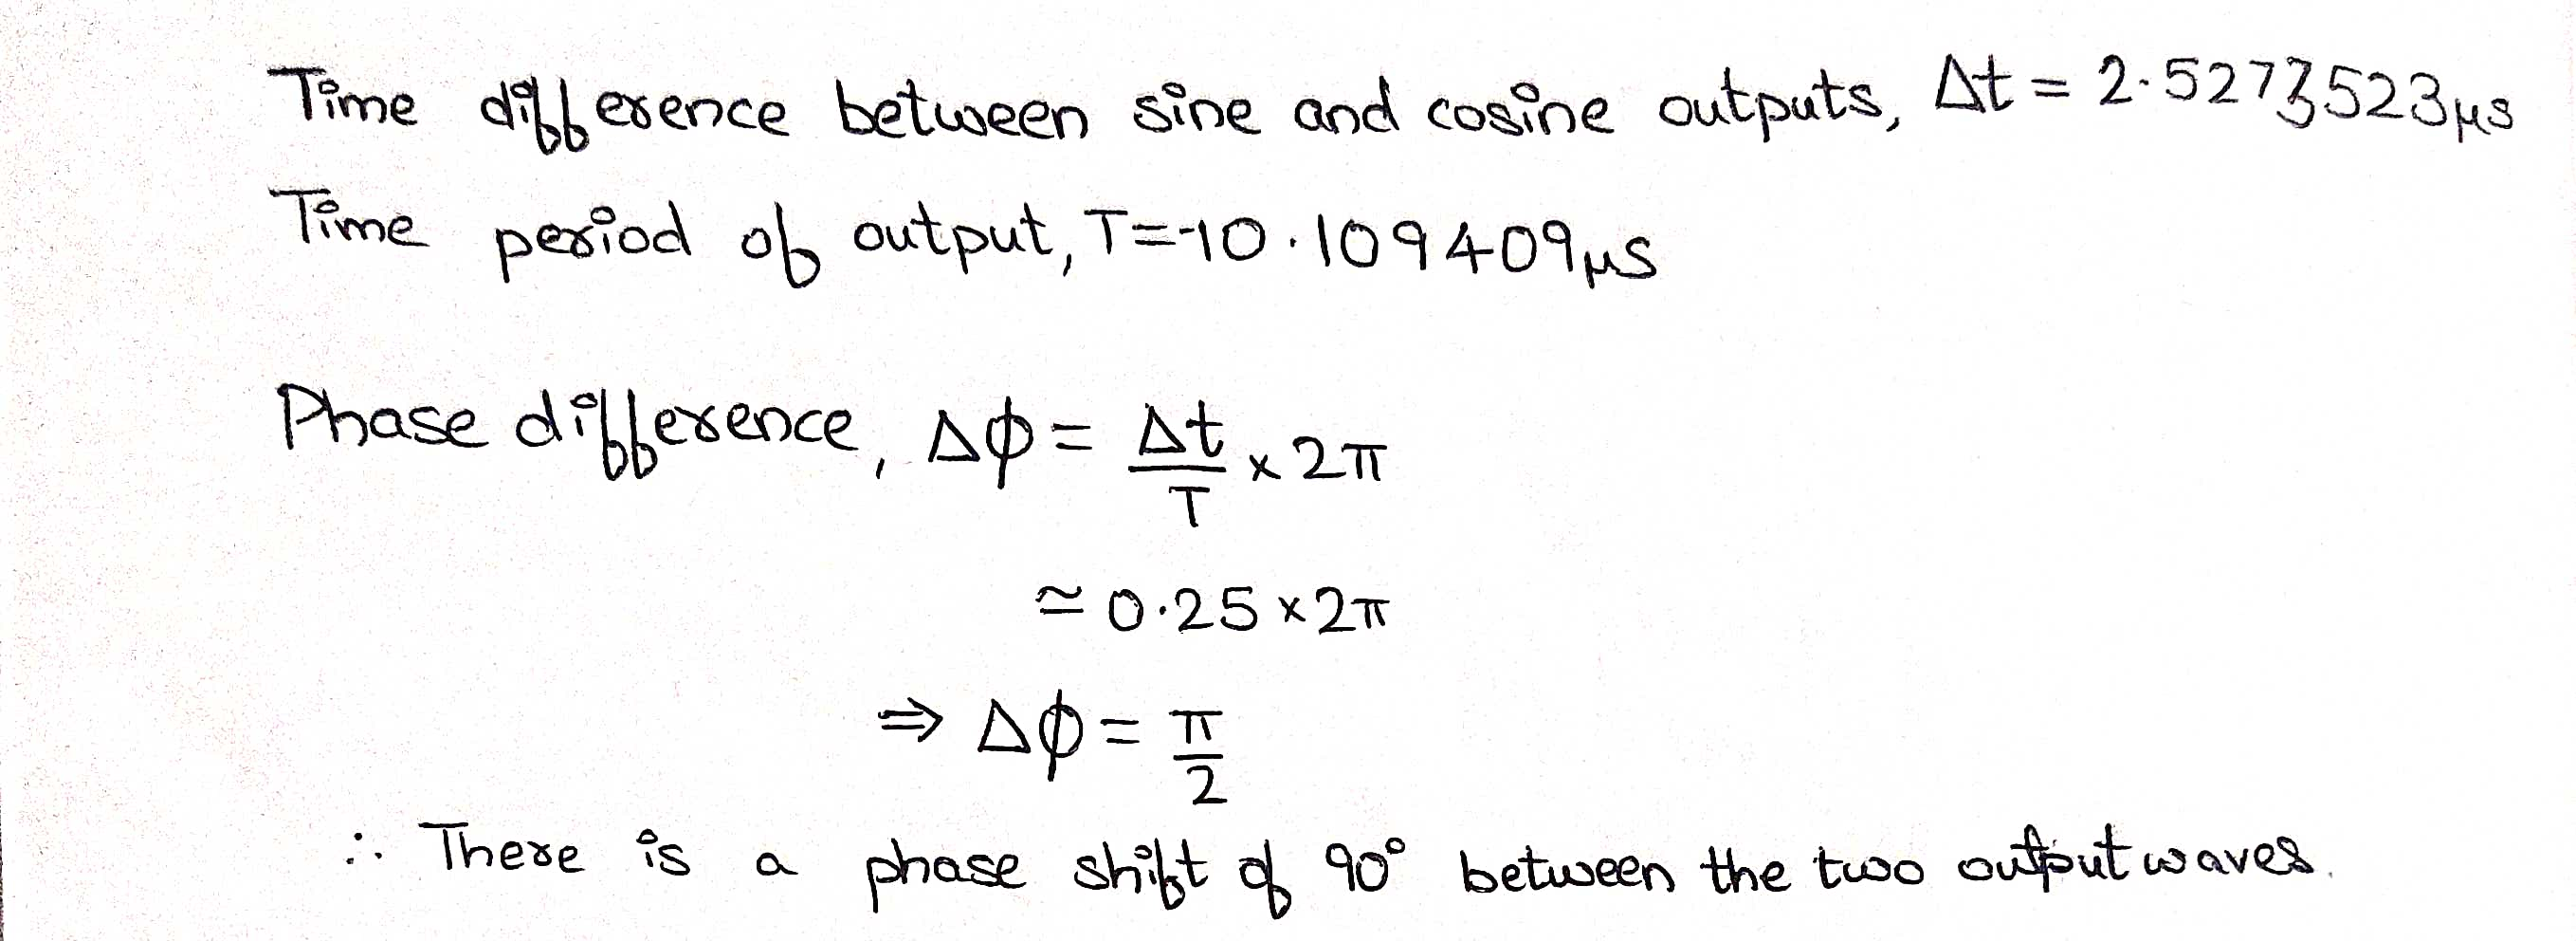 Time difference between sine and cosine outputs, Δt = 2.5273523μs
Time period of output, T=10.109409μs
Phase difference, Δϕ = Δt/T × 2π
≃ 0.25 × 2π
⇒ Δϕ = π/2
∴ There is a phase shift of 90° between the two output waves.